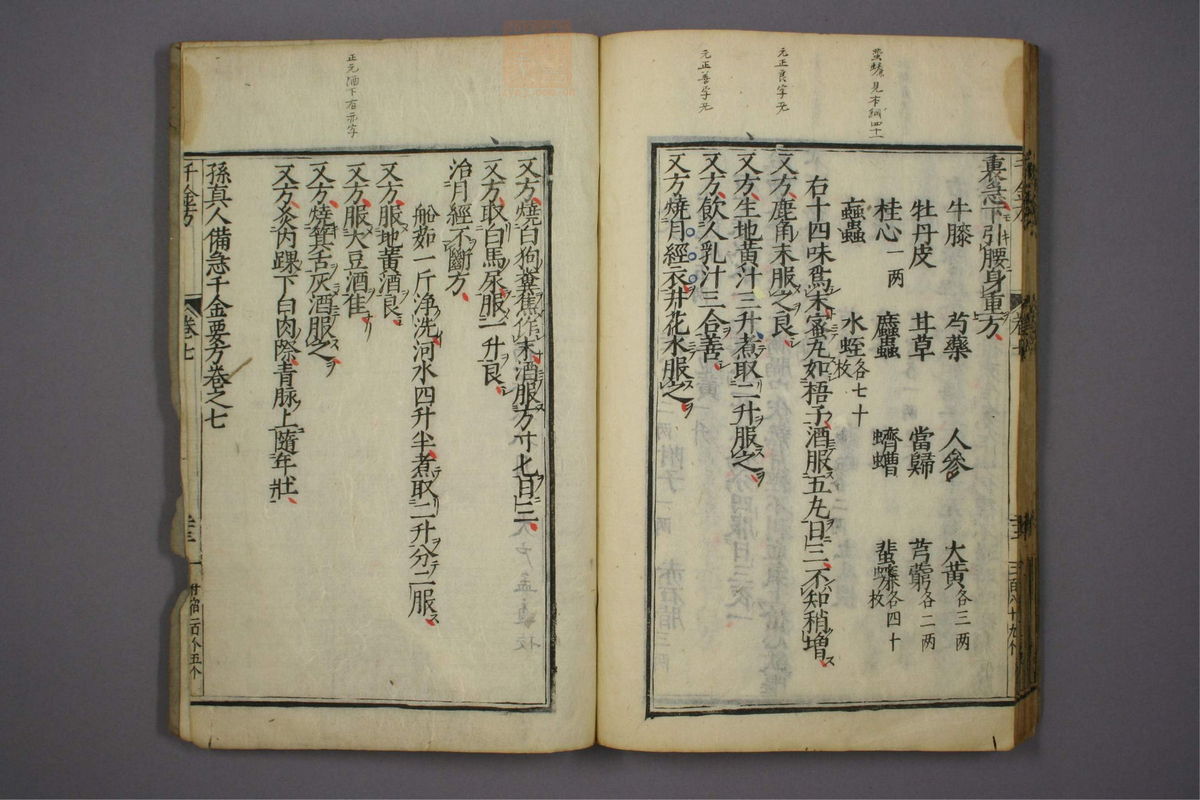 蜚蠊見本綱四十一
元正良字无
元正善字无
裏急下引腰身重方
牛膝 芍藥 人參 大黃各三兩
牡丹皮 甘草 當歸 芎藭各二兩
桂心一兩 䗪蟲 蠐螬 蜚蠊各四十枚
蝱蟲 水蛭各七十枚
右十四味爲末蜜丸如梧子酒服五丸日三不知稍增
又方鹿角末服之良
又方生地黃汁三升煮取二升服之
又方飲人乳汁三合善
又方燒月經衣井花水服之
正元酒下有亦字
又方燒白狗糞焦作末酒服方寸匕日三
又方取白馬尿服一升良
治月經不斷方
船茹一斤淨洗河水四升半煮取二升分二服
又方服地黃酒良
又方服大豆酒佳
又方燒箕舌灰酒服之
又方灸內踝下白肉際青脉上隨年壯
孫真人備急千金要方卷之七
千金方 卷七